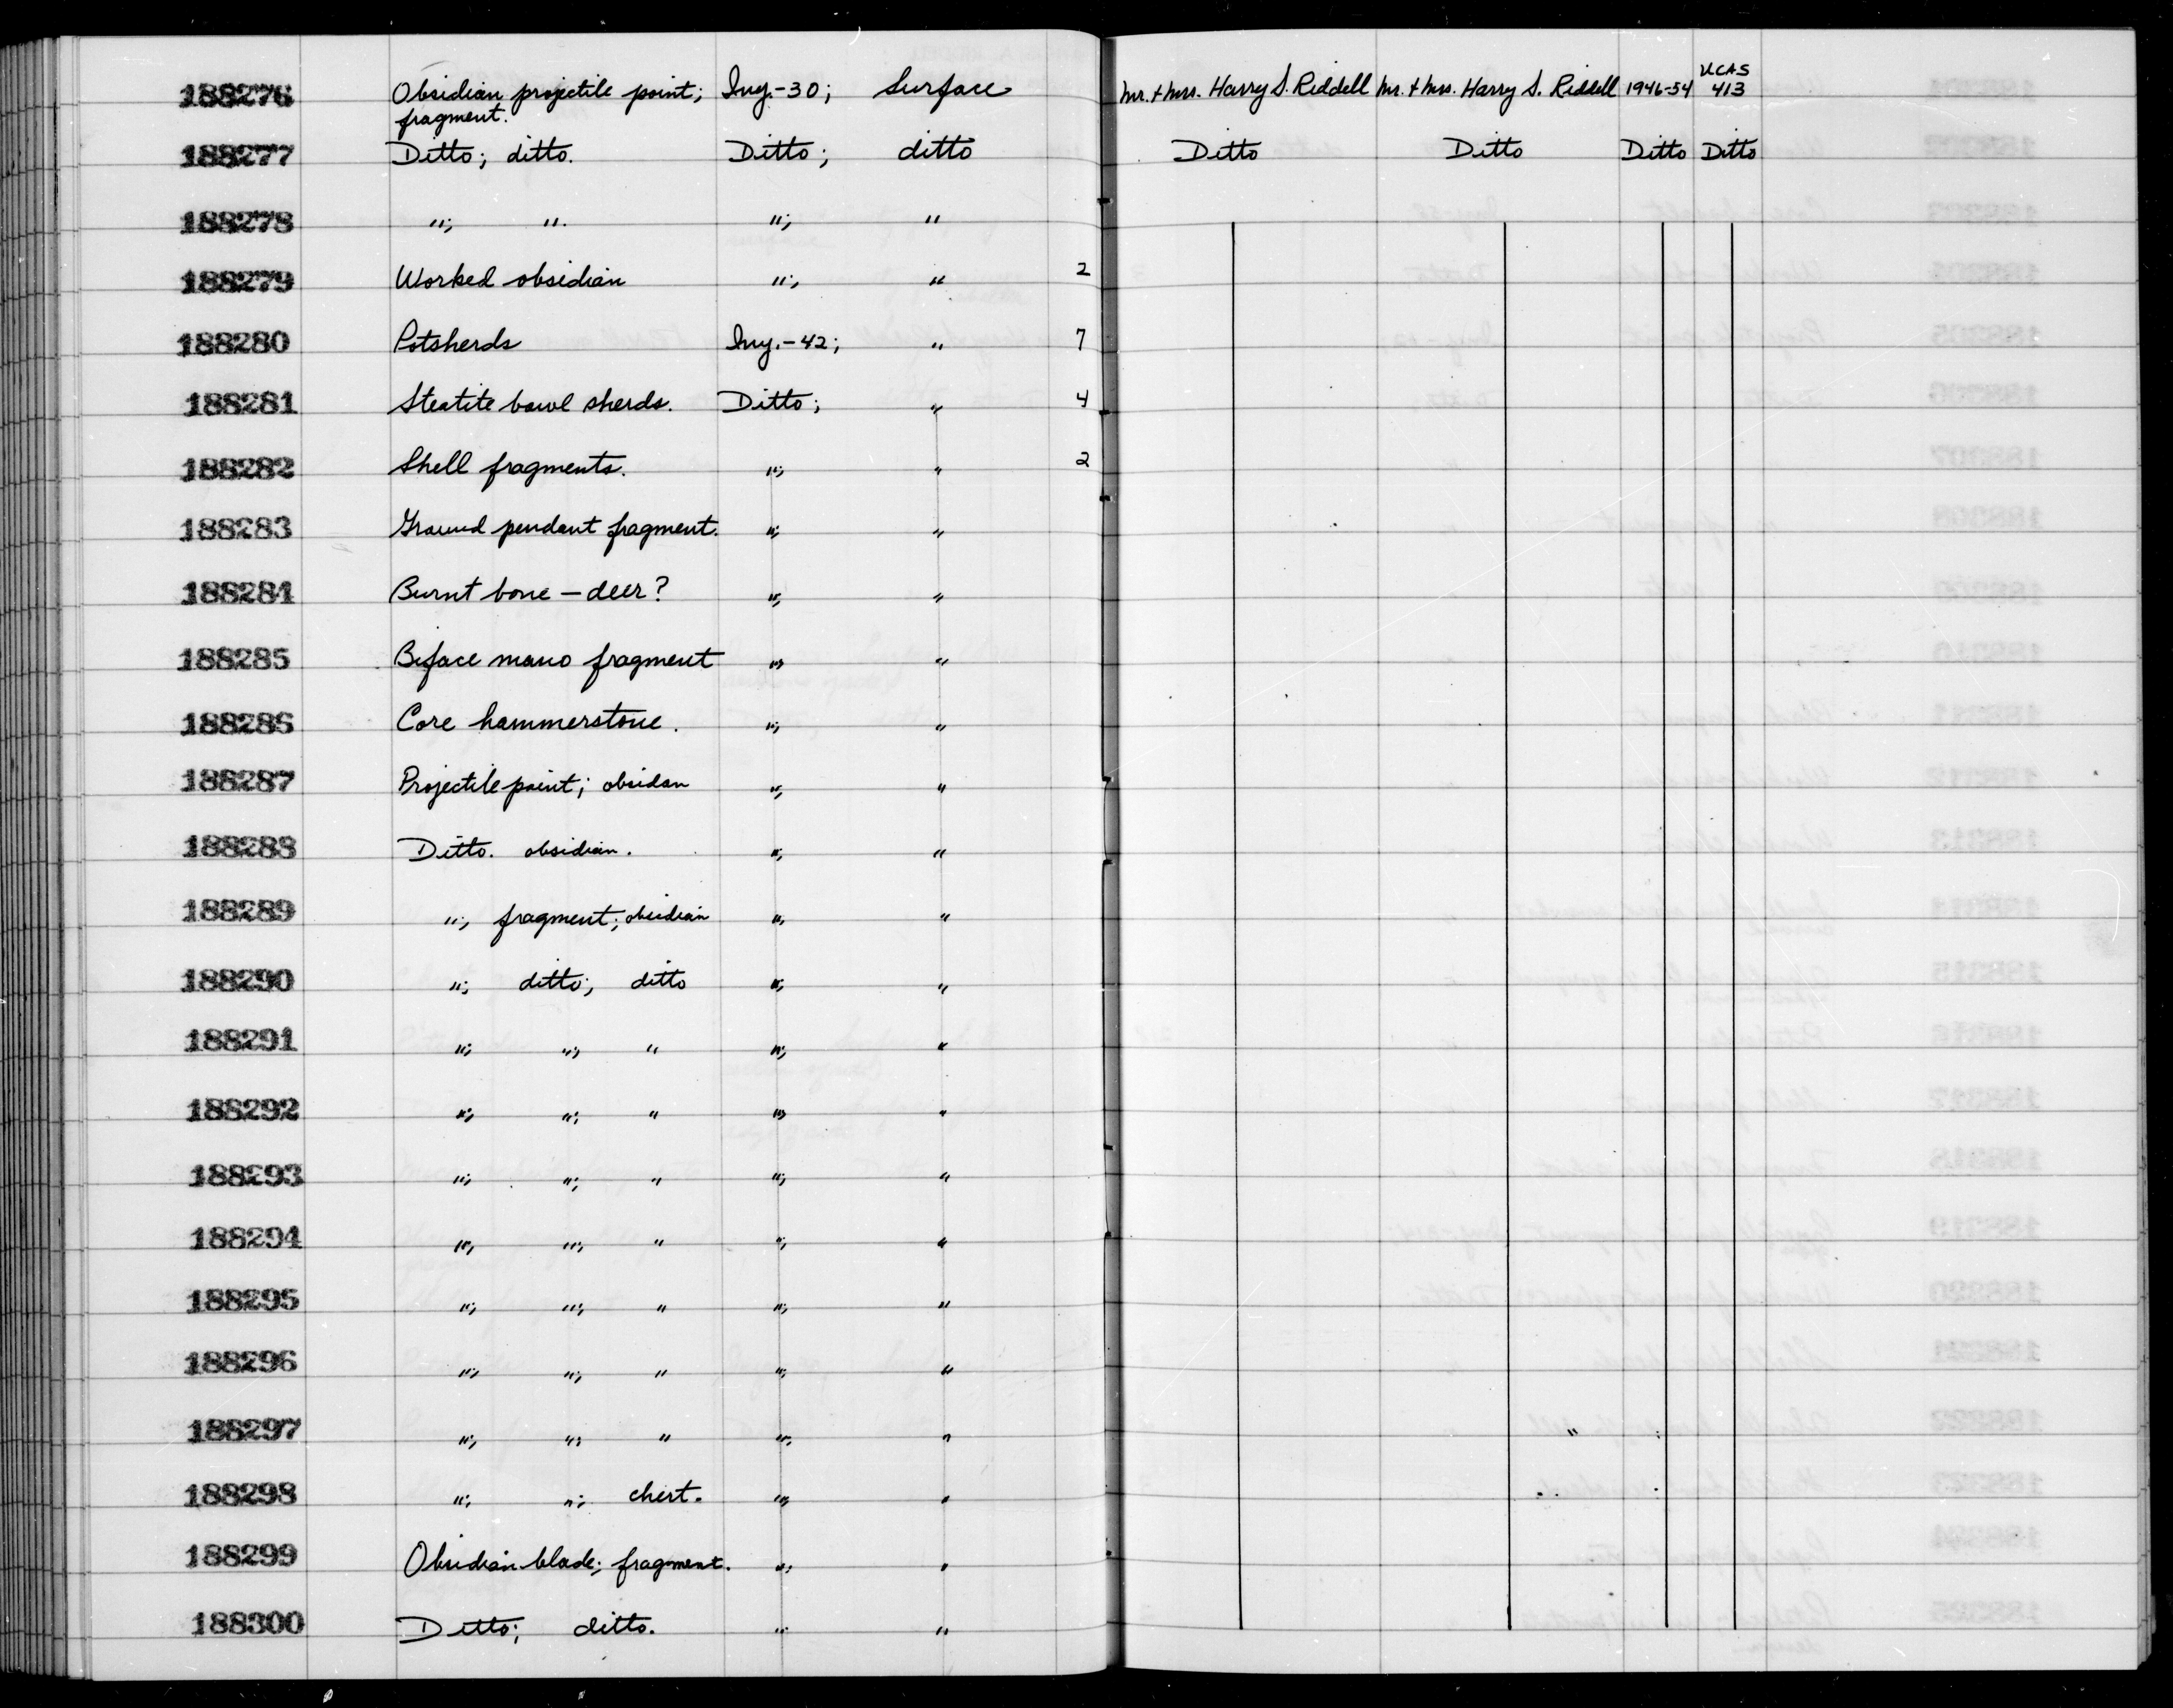 188276 Obsidian projectile point; Iny.-30; Surface Mr. + Mrs. Harry S. Riddell Mr. + Mrs. Harry S. Riddell 1946-54 UCAS 413
fragment.
188277 Ditto; ditto. Ditto; ditto Ditto Ditto Ditto Ditto
188278 "; ". "; "
188279 Worked obsidian "; " 2
188280 Potsherds Iny.-42; " 7
188281 Steatite bowl sherds. Ditto; " 4
188282 Shell fragments. "; " 2
188283 Ground pendant fragment. "; "
188284 Burnt bone — deer? "; "
188285 Biface mano fragment "; "
188286 Core hammerstone. "; "
188287 Projectile point; obsidan "; "
188288 Ditto. obsidian. "; "
188289 "; fragment; obsidian "; "
188290 "; ditto; ditto "; "
188291 "; "; " "; "
188292 "; "; " "; "
188293 "; "; " "; "
188294 "; "; " "; "
188295 "; "; " "; "
188296 "; "; " "; "
188297 "; "; " "; "
188298 "; "; chert. "; "
188299 Obsidian blade; fragment. "; "
188300 Ditto; ditto. "; "